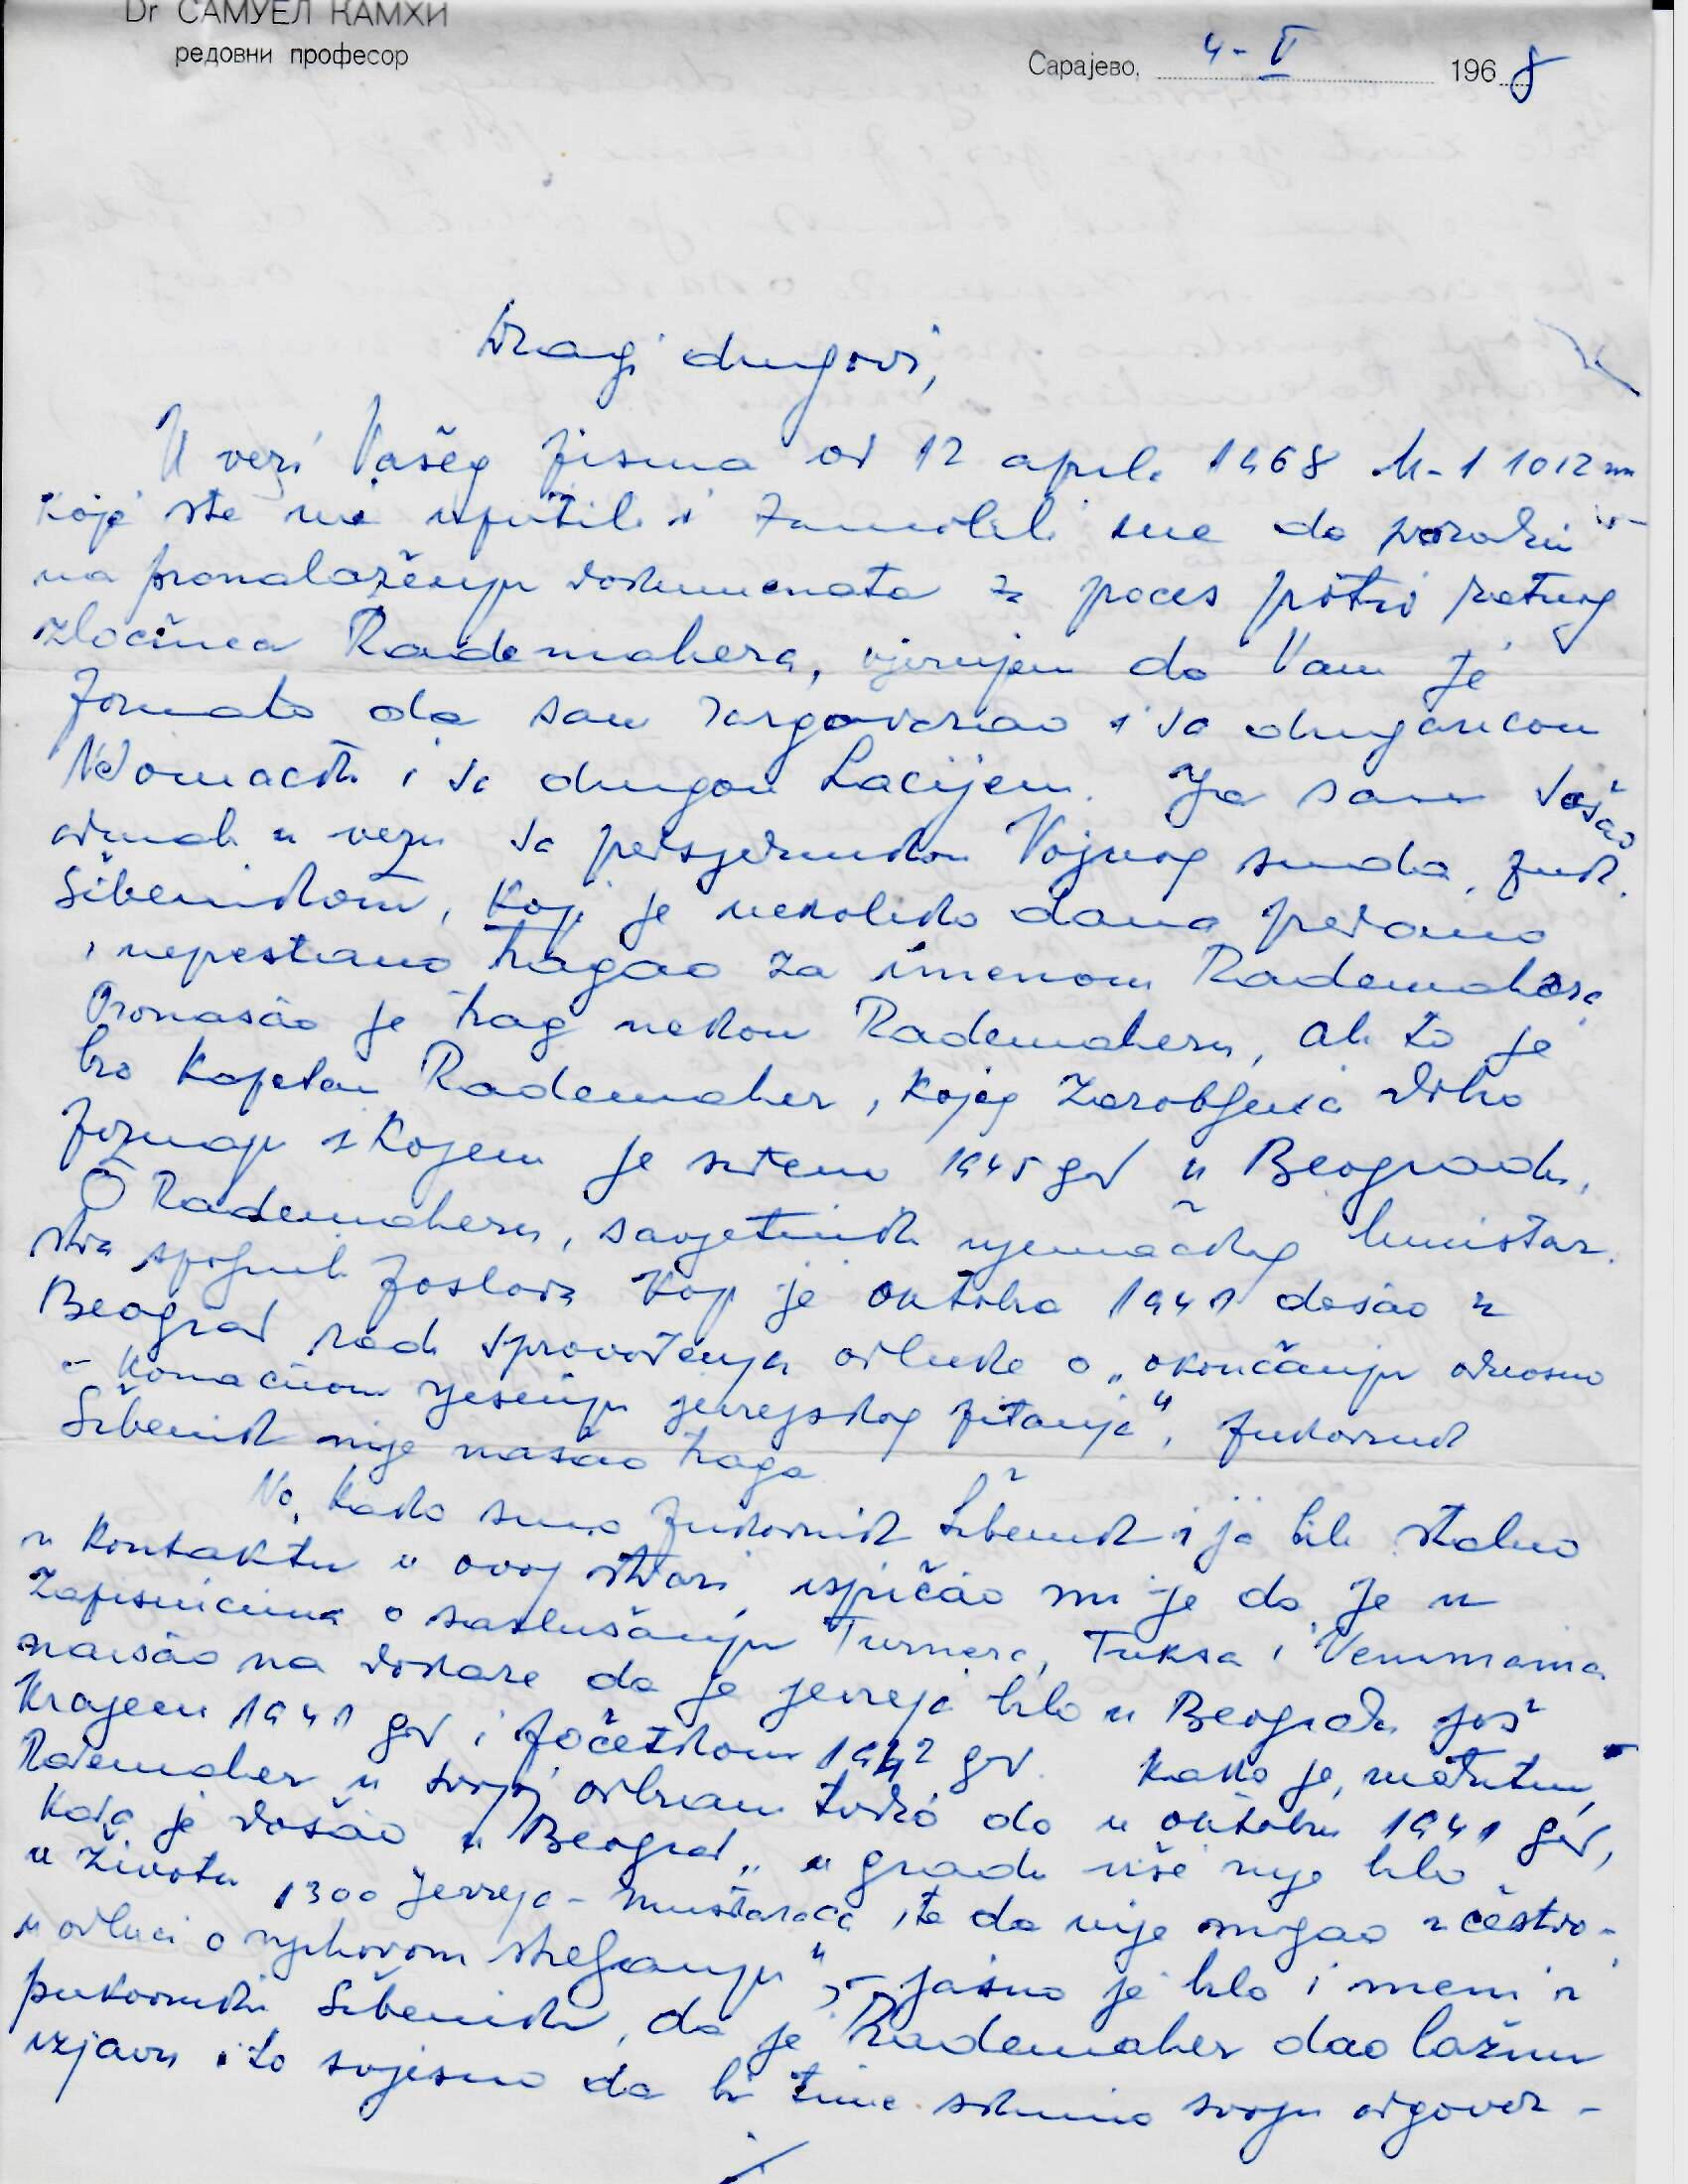 Dr САМУЕЛ КАМХИ
редовни професор
Сарајево, 4-V 1968
Dragi drugovi,
U vezi Vašeg pisma od 12 aprila 1968 M-1 1012
koje ste mi uputili i zamolili me da poradim
na pronalaženju dokumenata za proces protiv ratnog
zločinca Rademahera, vjerujem da Vam je
poznato da sam razgovarao i sa drugaricom
i sa drugom Lacijem. Ja sam došao
odmah u vezu sa pretsjednikom Vojnog suda, puk.
Šibenikom, koji je nekoliko dana predano
i neprestano tragao za imenom Rademahera
Pronašao je trag nekom Rademaheru, ali to je
bio kapetan Rademaher, kojeg zarobljenog
poznaje i kojem je suđeno 1945 god u Beogradu.
O Rademaheru, savjetniku njemačkog Ministar-
stva spoljnih poslova koji je oktobra 1941 došao u
Beograd radi sprovođenja odluke o „okončanju odnosno
konačnom rješenju jevrejskog pitanja“, pukovnik
Šibenik nije našao traga
No, kako smo pukovnik Šibenik i ja bili stalno
u kontaktu u ovoj stvari, ispričao mi je da je u
zapisnicima o saslušanju Turnera, Fuksa i
naišao na dokaze da je jevreja bilo u Beogradu još
krajem 1941 god i početkom 1942 god. Kako je, međutim,
Rademaher u svojoj odbrani tvrdio da u oktobru 1941 god,
kada je došao u Beograd, „u gradu više nije bilo
u životu 1300 Jevreja - muškaraca, te da nije mogao učestvo-
u odluci o njihovom streljanju“, - jasno je bilo i meni i
pukovniku Šibeniku, da je Rademaher dao lažnu
izjavu i to svjesno da bi time skinuo svoju odgovor-